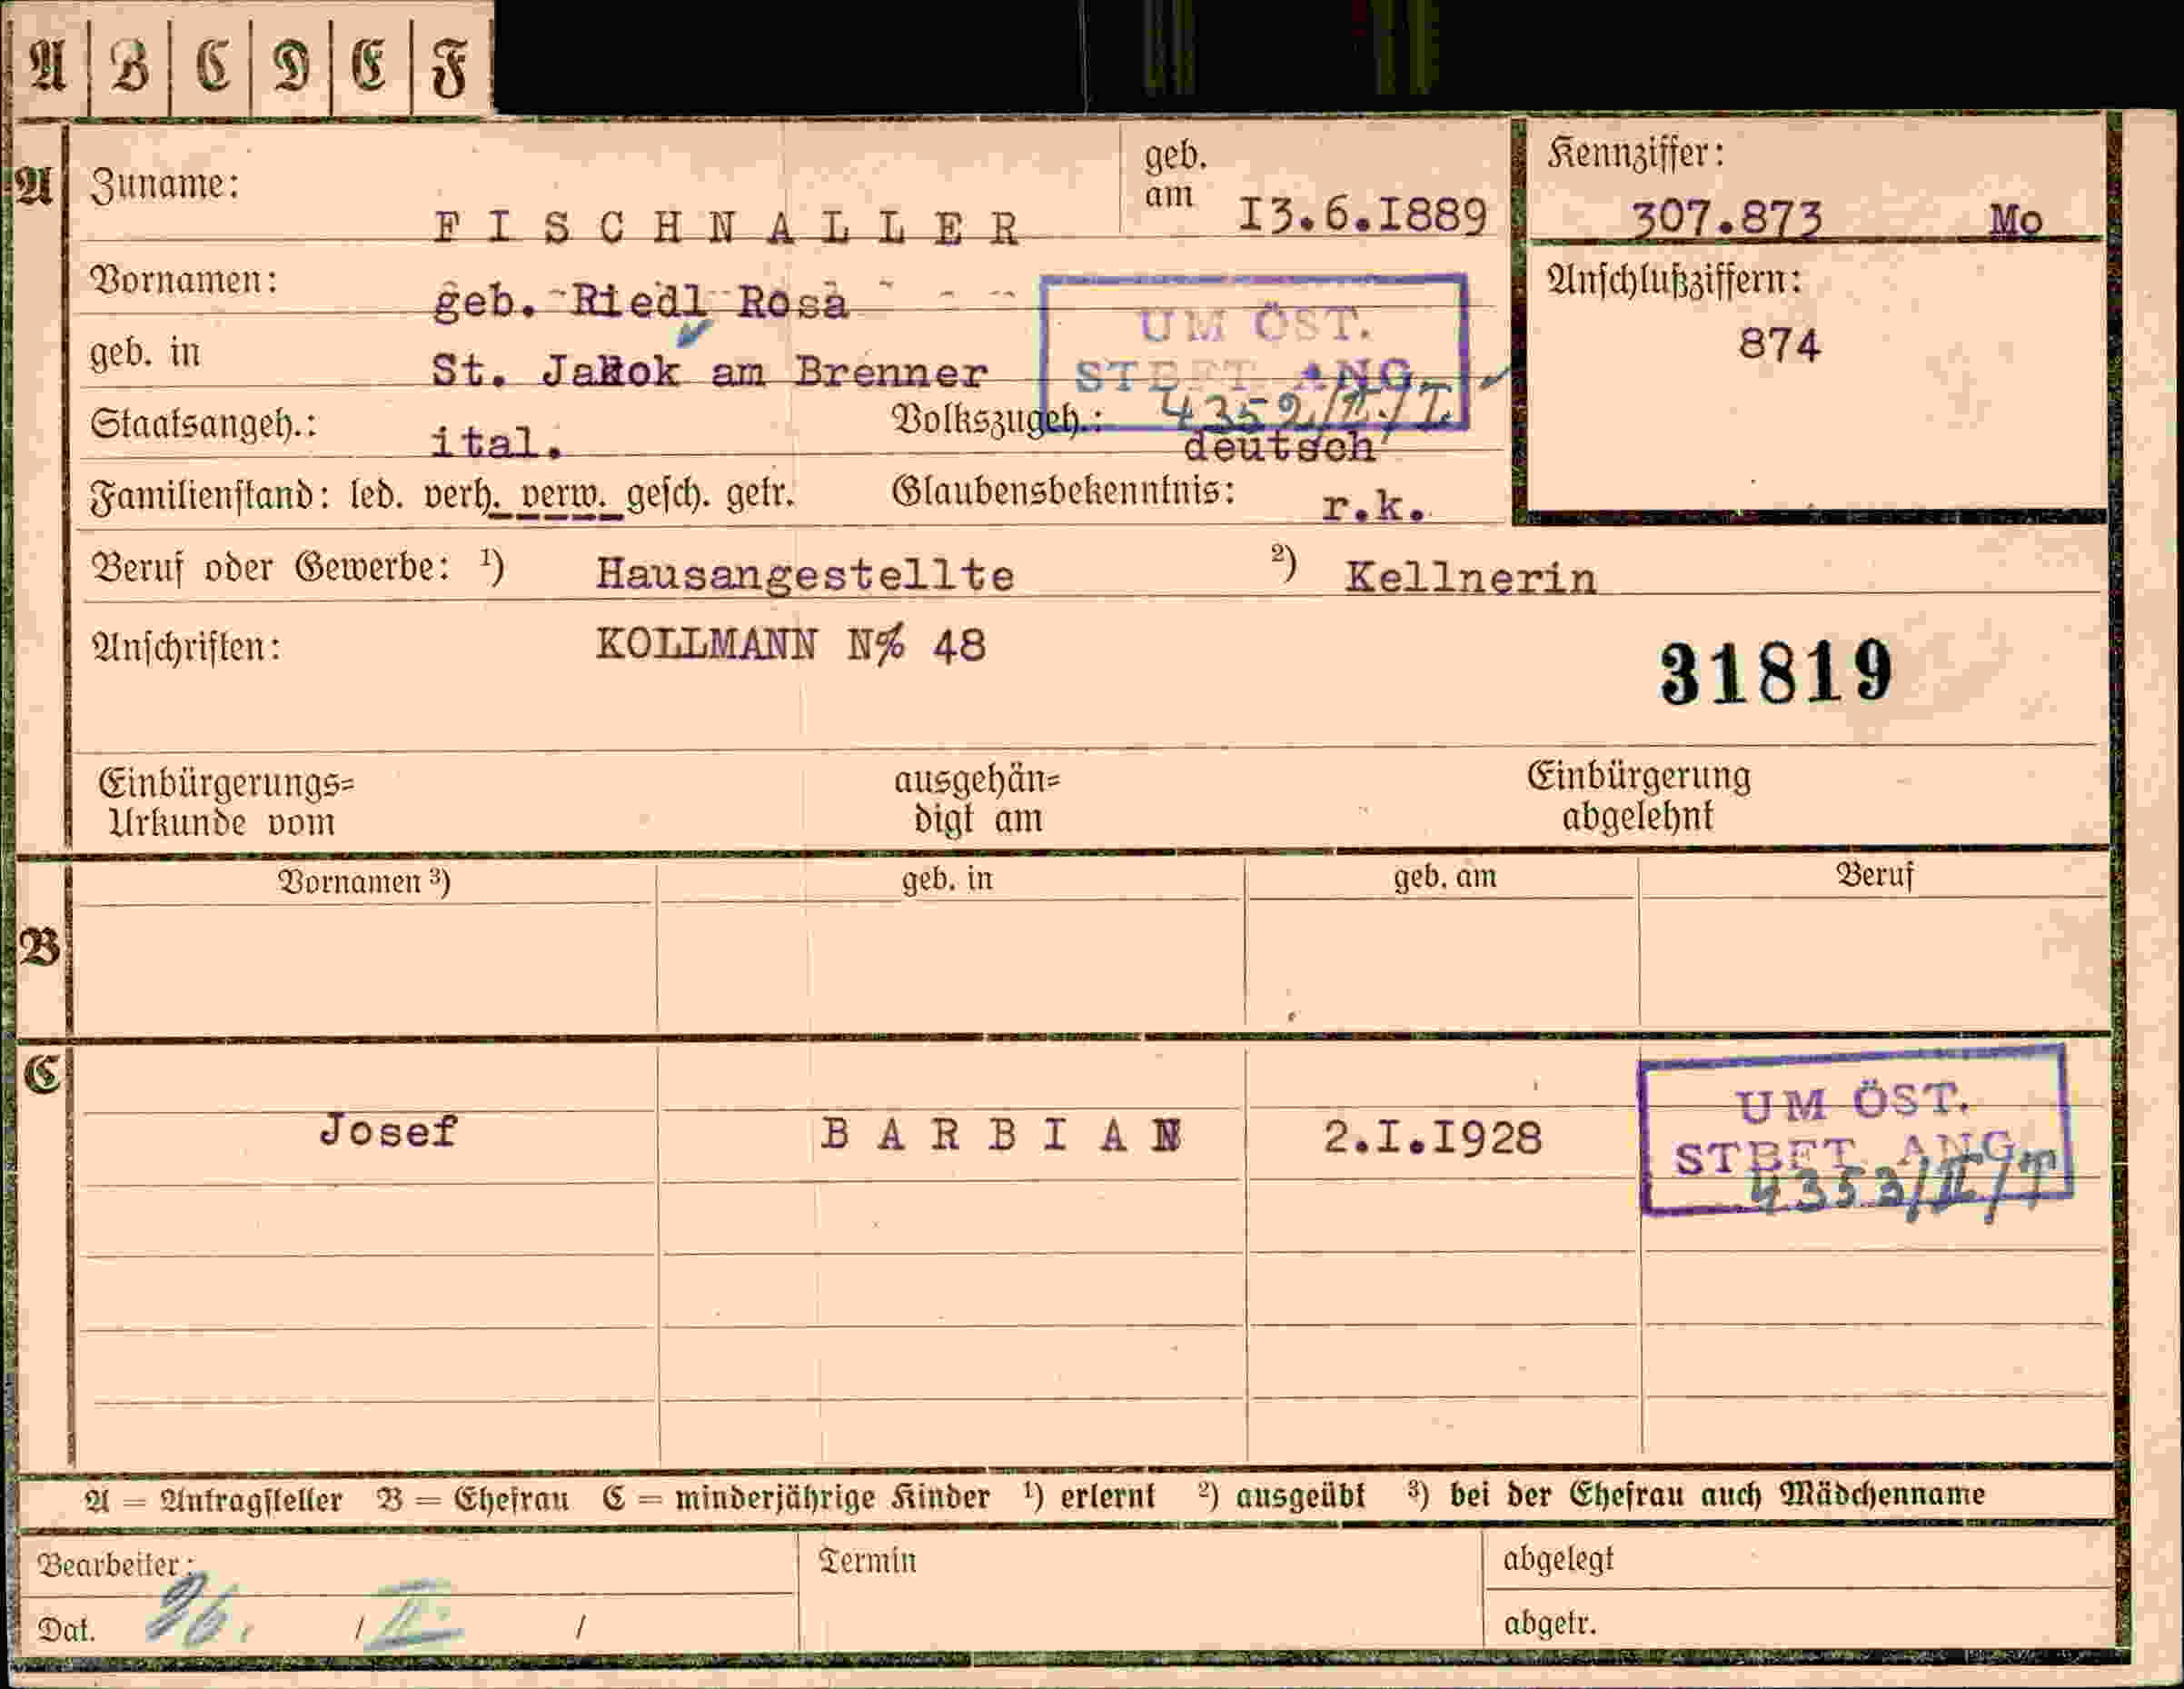 A B C D E F
A Zuname: FISCHNALLER geb. am I3.6.I889 Kennziffer: 307.873 Mo
Vornamen: geb. Riedl Rosa Anschlußziffern: 874
UM ÖST.
geb. in St. Jakok am Brenner STBFT ANG.
4352/II./I
Staatsangeh.: ital. Volkszugeh.: deutsch
Familienstand: led. verh. verw. gesch. getr. Glaubensbekenntnis: r.k.
Beruf oder Gewerbe: 1) Hausangestellte 2) Kellnerin
Anschriften: KOLLMANN N% 48
31819
Einbürgerungs= Urkunde vom ausgehän= digt am Einbürgerung abgelehnt
B Vornamen 3) geb. in geb. am Beruf
C
UM ÖST.
Josef BARBIAN 2.I.I928 STBFT ANG.
4353/II/
A = Antragsteller B = Ehefrau C = minderjährige Kinder 1) erlernt 2) ausgeübt 3) bei der Ehefrau auch Mädchenname
Bearbeiter: Termin abgelegt
Dat. 26. / II / abgetr.